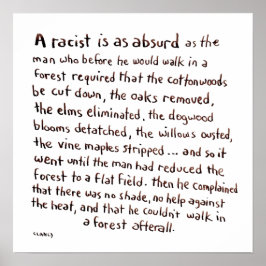 A racist is as absurd as the
man who before he would walk in a
forest required that the cottonwoods
be cut down, the oaks removed,
the elms eliminated. the dogwood
blooms detatched, the willows ousted,
the vine maples stripped... and so it
went until the man had reduced the
forest to a flat field. then he complained
that there was no shade, no help against
the heat, and that he couldn't walk in
a forest afterall.